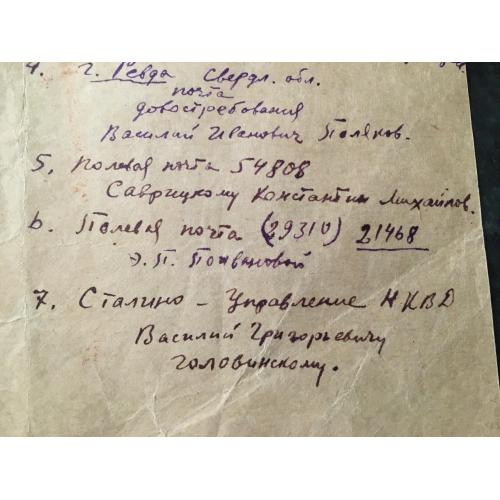 4. г. Ревда Свердл. обл.
почта
довостребования
Василий Иванович Поляков.
5. полевая почта 54808
Саврицкому Константин Михайлов.
6. Полевая почта (29310) 21468
Э. П.
7. Сталино – Управление НКВД
Василий Григорьевичу
Головинскому.